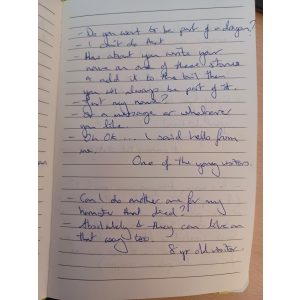 - Do you want to be part of a dragon?
- I can't do that
- How about you write your
name on one of these stones
& add it to the tail then
you will always be part of it.
- Just my name?
- Or a message or whatever
you like.
Oh OK .... I said hello from
me.
One of the young visitors.
- Can I do another one for my
hamster that died?
- Absolutely & they can live on
that way too.
8 yr old visitor.